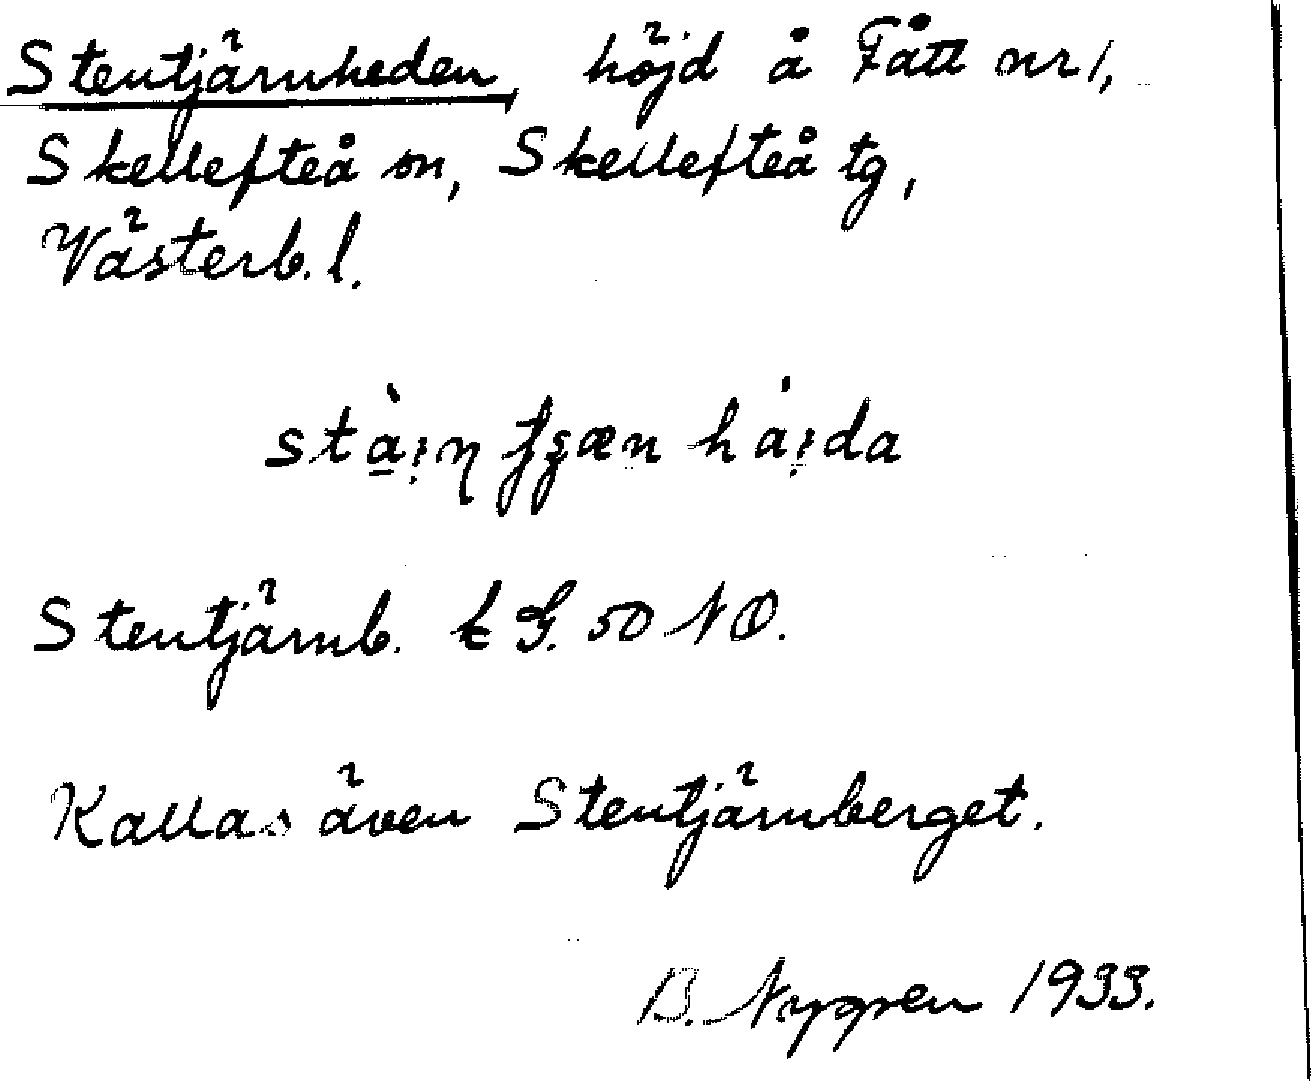 Stentjärnheden, höjd å Fått nr 1,
Skellefteå sn, Skellefteå tg,
Västerb. l.
Stentjärnb. t G. 50 NO.
Kallas även Stentjärnberget.
B. Nygren 1933.